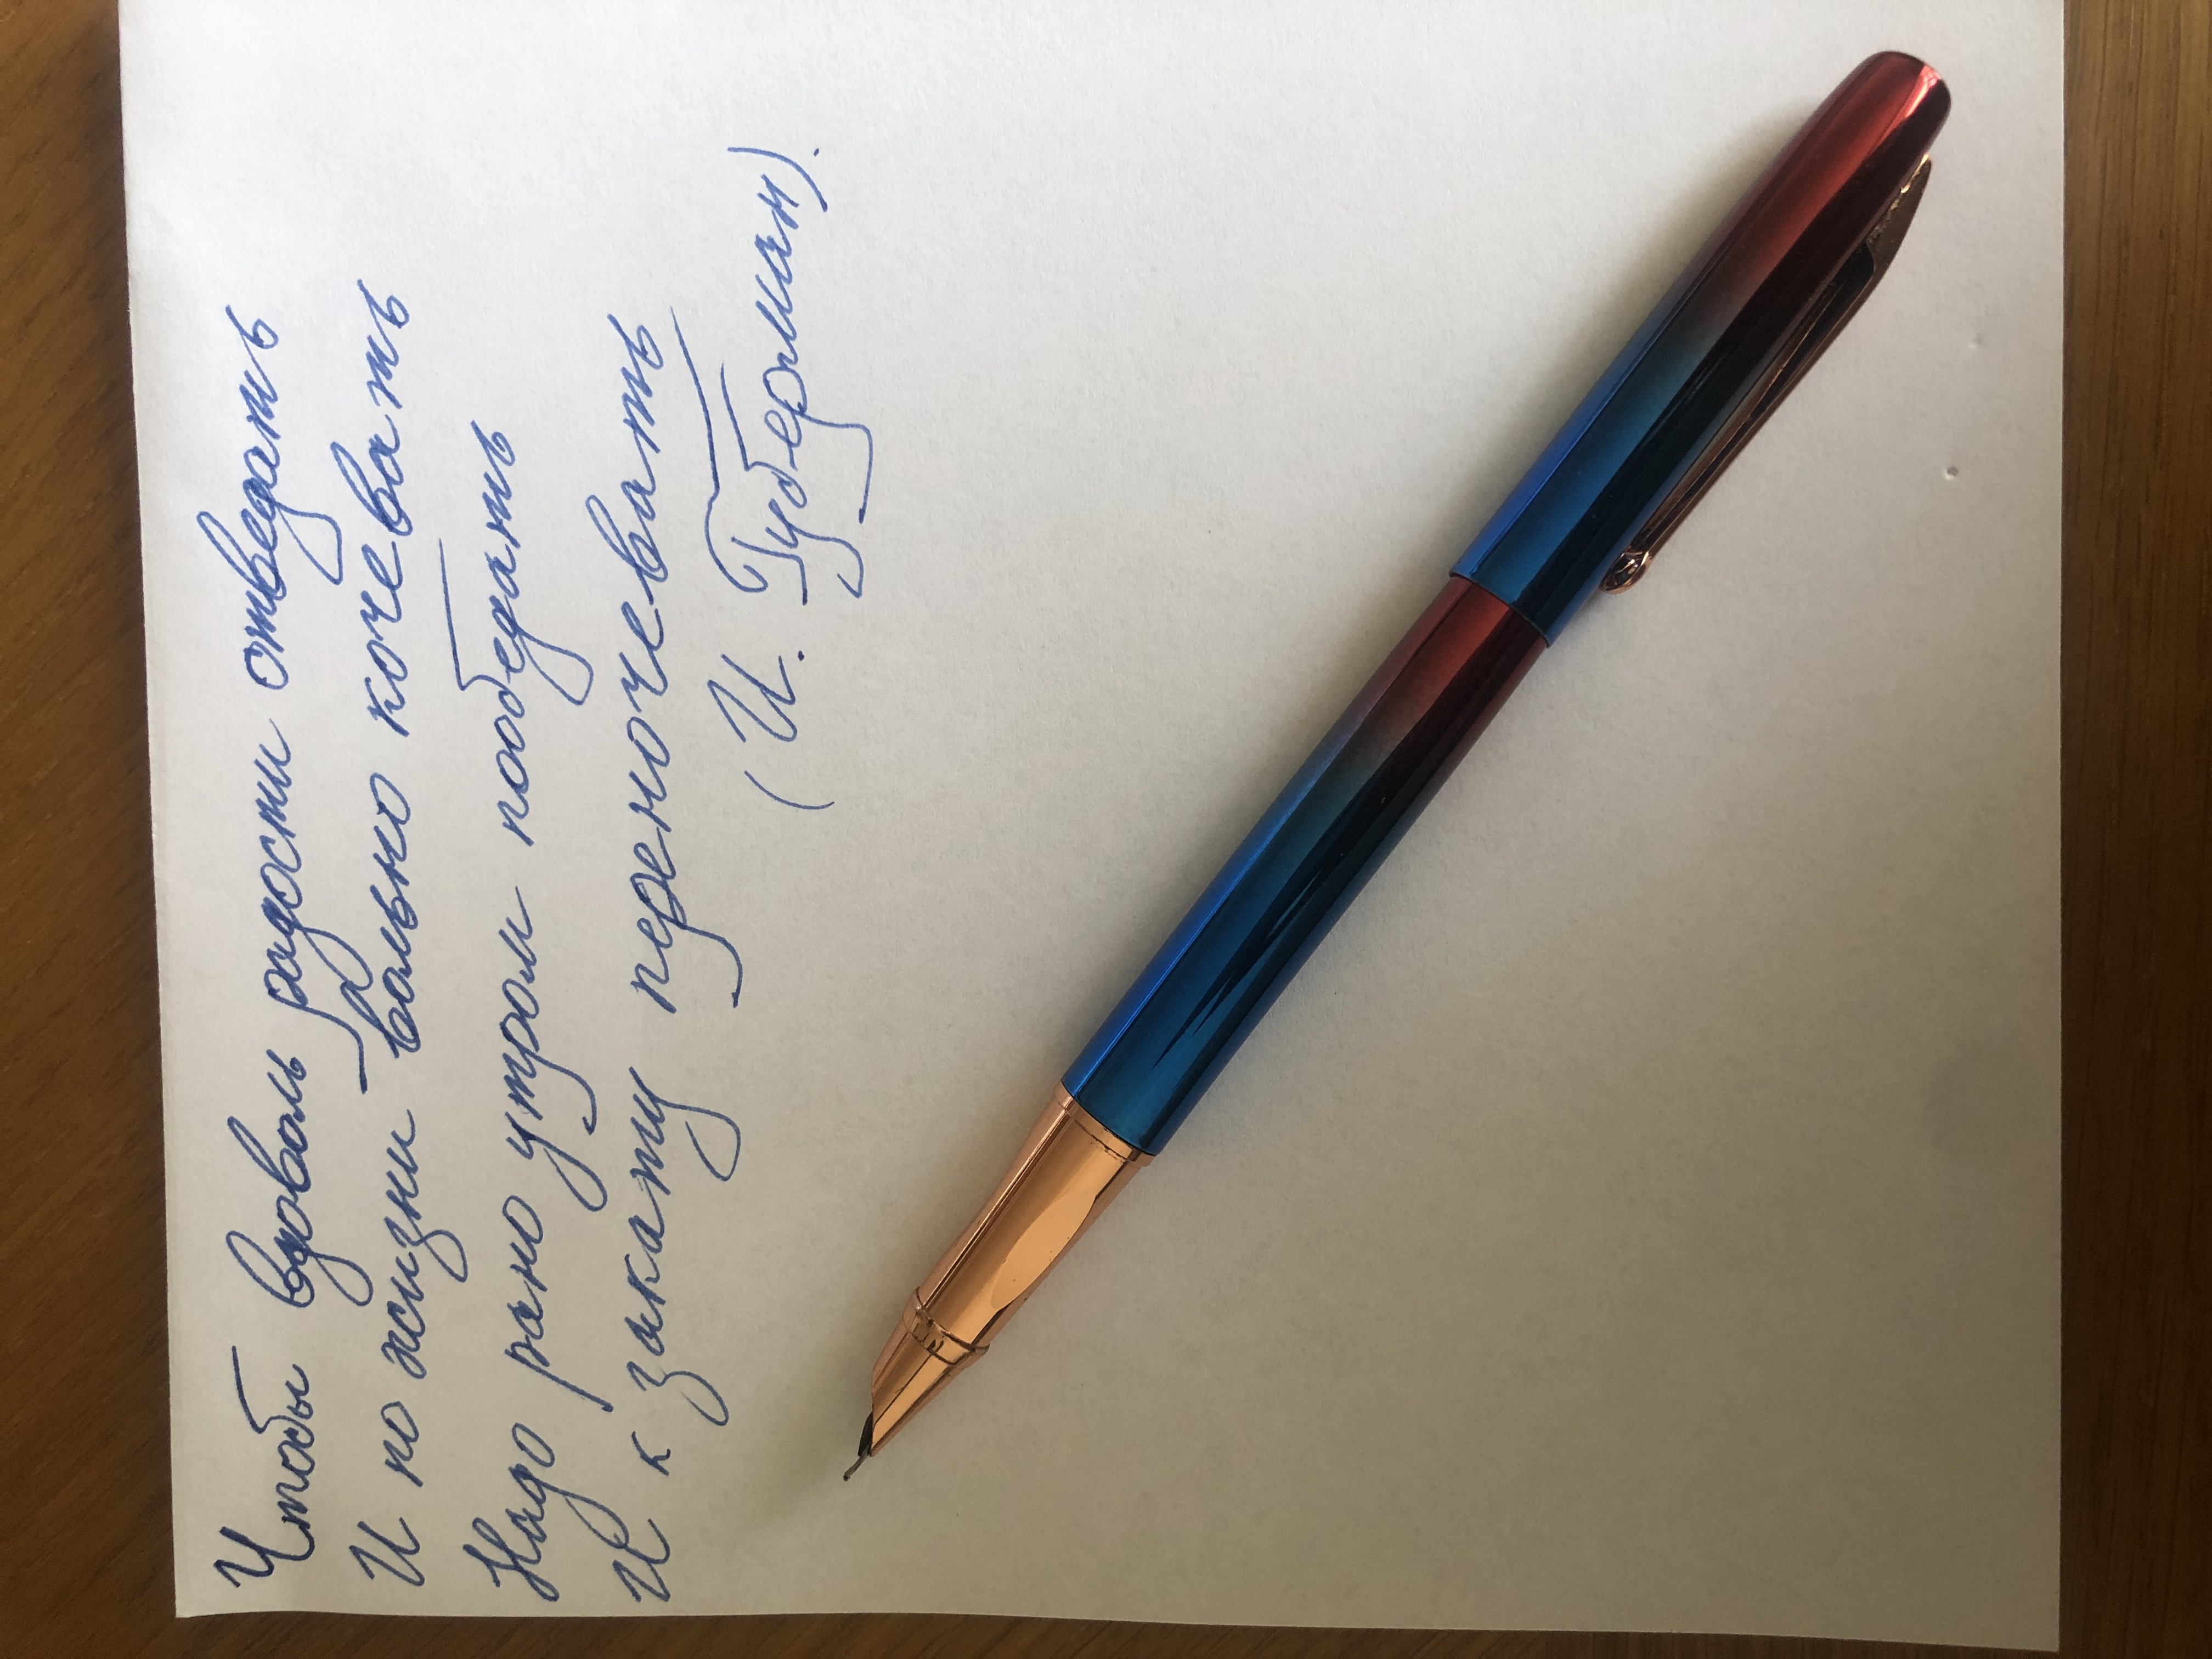 Чтобы вдоволь радости отведать
И по жизни вольно кочевать
Надо рано утром пообедать
И к закату переночевать
(И. Губерман).